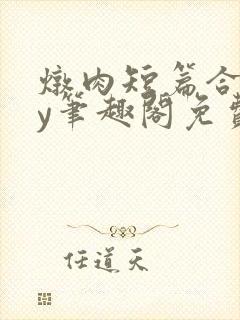 燉肉短篇合
y笔趣阁免费
任道天